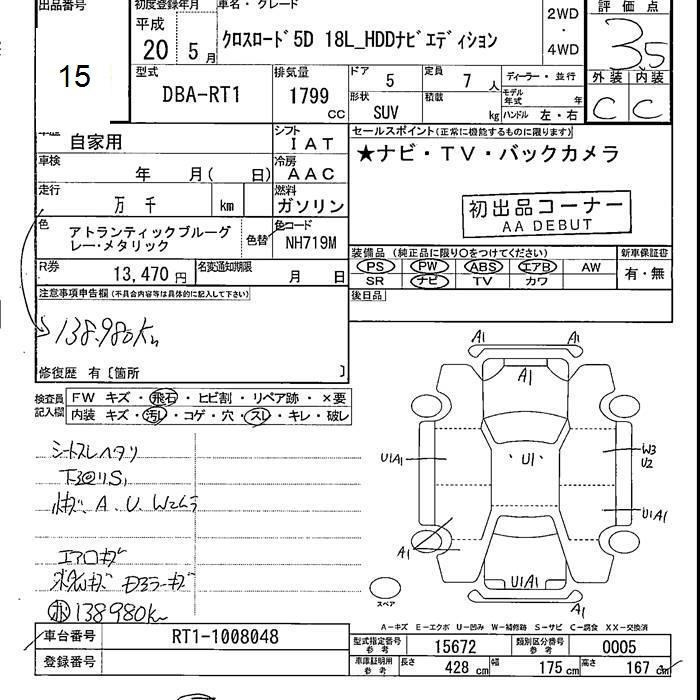 出品番号
15
初度登録年月
平成
20 5 月
車名・グレード
クロスロード 5D 18L_HDDナビエディション
2WD
・
4WD
評価点
3.5
外装 内装
C C
型式
DBA-RT1
排気量
1799
CC
ドア 5
定員 7 人
形状 SUV
積載 kg
ディーラー・並行
モデル年式 年
ハンドル 左・右
自家用
シフト
IAT
車検
年 月( 日)
冷房
AAC
走行
万 千 km
燃料
ガソリン
色
アトランティックブルーグ
レー・メタリック
色替
色コード
NH719M
R券
13,470 円
名変通知期限
月 日
セールスポイント(正常に機能するものに限ります)
★ナビ・TV・バックカメラ
初出品コーナー
AA DEBUT
装備品 (純正品に限り○をつけてください)
PS PW ABS エアB AW
SR ナビ TV カワ
新車保証書
有・無
後日品
注意事項申告欄(不具合内容等は具体的に記入して下さい)
138.980km
修復歴 有〔箇所 〕
検査員
記入欄
FW キズ・飛石・ヒビ割・リペア跡・×要
内装 キズ・汚レ・コゲ・穴・スレ・キレ・破レ
シートスレヘタリ
A、U、W
エアロキズ
138980km
A1 A1
A1
U1A1
U1
W3
U2
U1A1
A1
U1A1
A1
スペア
A-キズ E-エクボ U-凹み W-補修跡 S-サビ C-腐食 XX-交換済
車台番号
RT1-1008048
登録番号
型式指定番号
参考
15672
類別区分番号
参考
0005
車庫証明用
参考
長さ 428 cm
幅 175 cm
高さ 167 cm